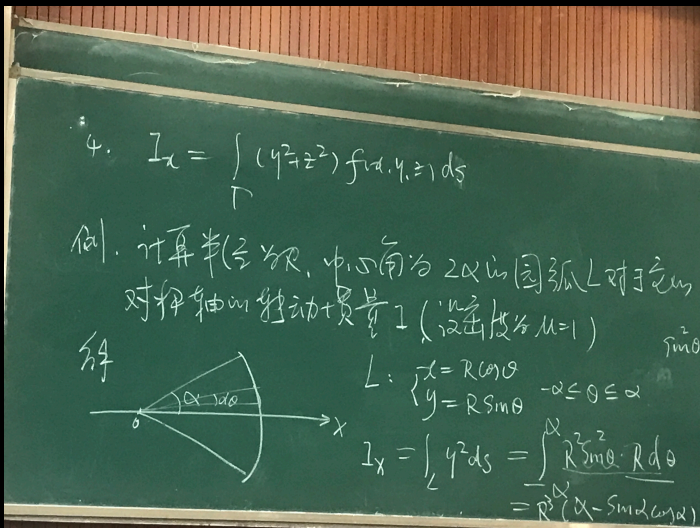 4. I_x = ∫_Γ (y²+z²) f(x,y,z) ds
例. 计算半径为R, 中心角为 2α的圆弧L对于它的
对称轴的转动惯量 I (设密度为 μ=1)
sin²θ
解
L: { x = Rcosθ
y = Rsinθ -α≤θ≤α
α dθ
0 X
I_x = ∫_L y²ds = ∫_{-α}^{α} R²sin²θ·Rdθ
= R³(α - sinαcosα)